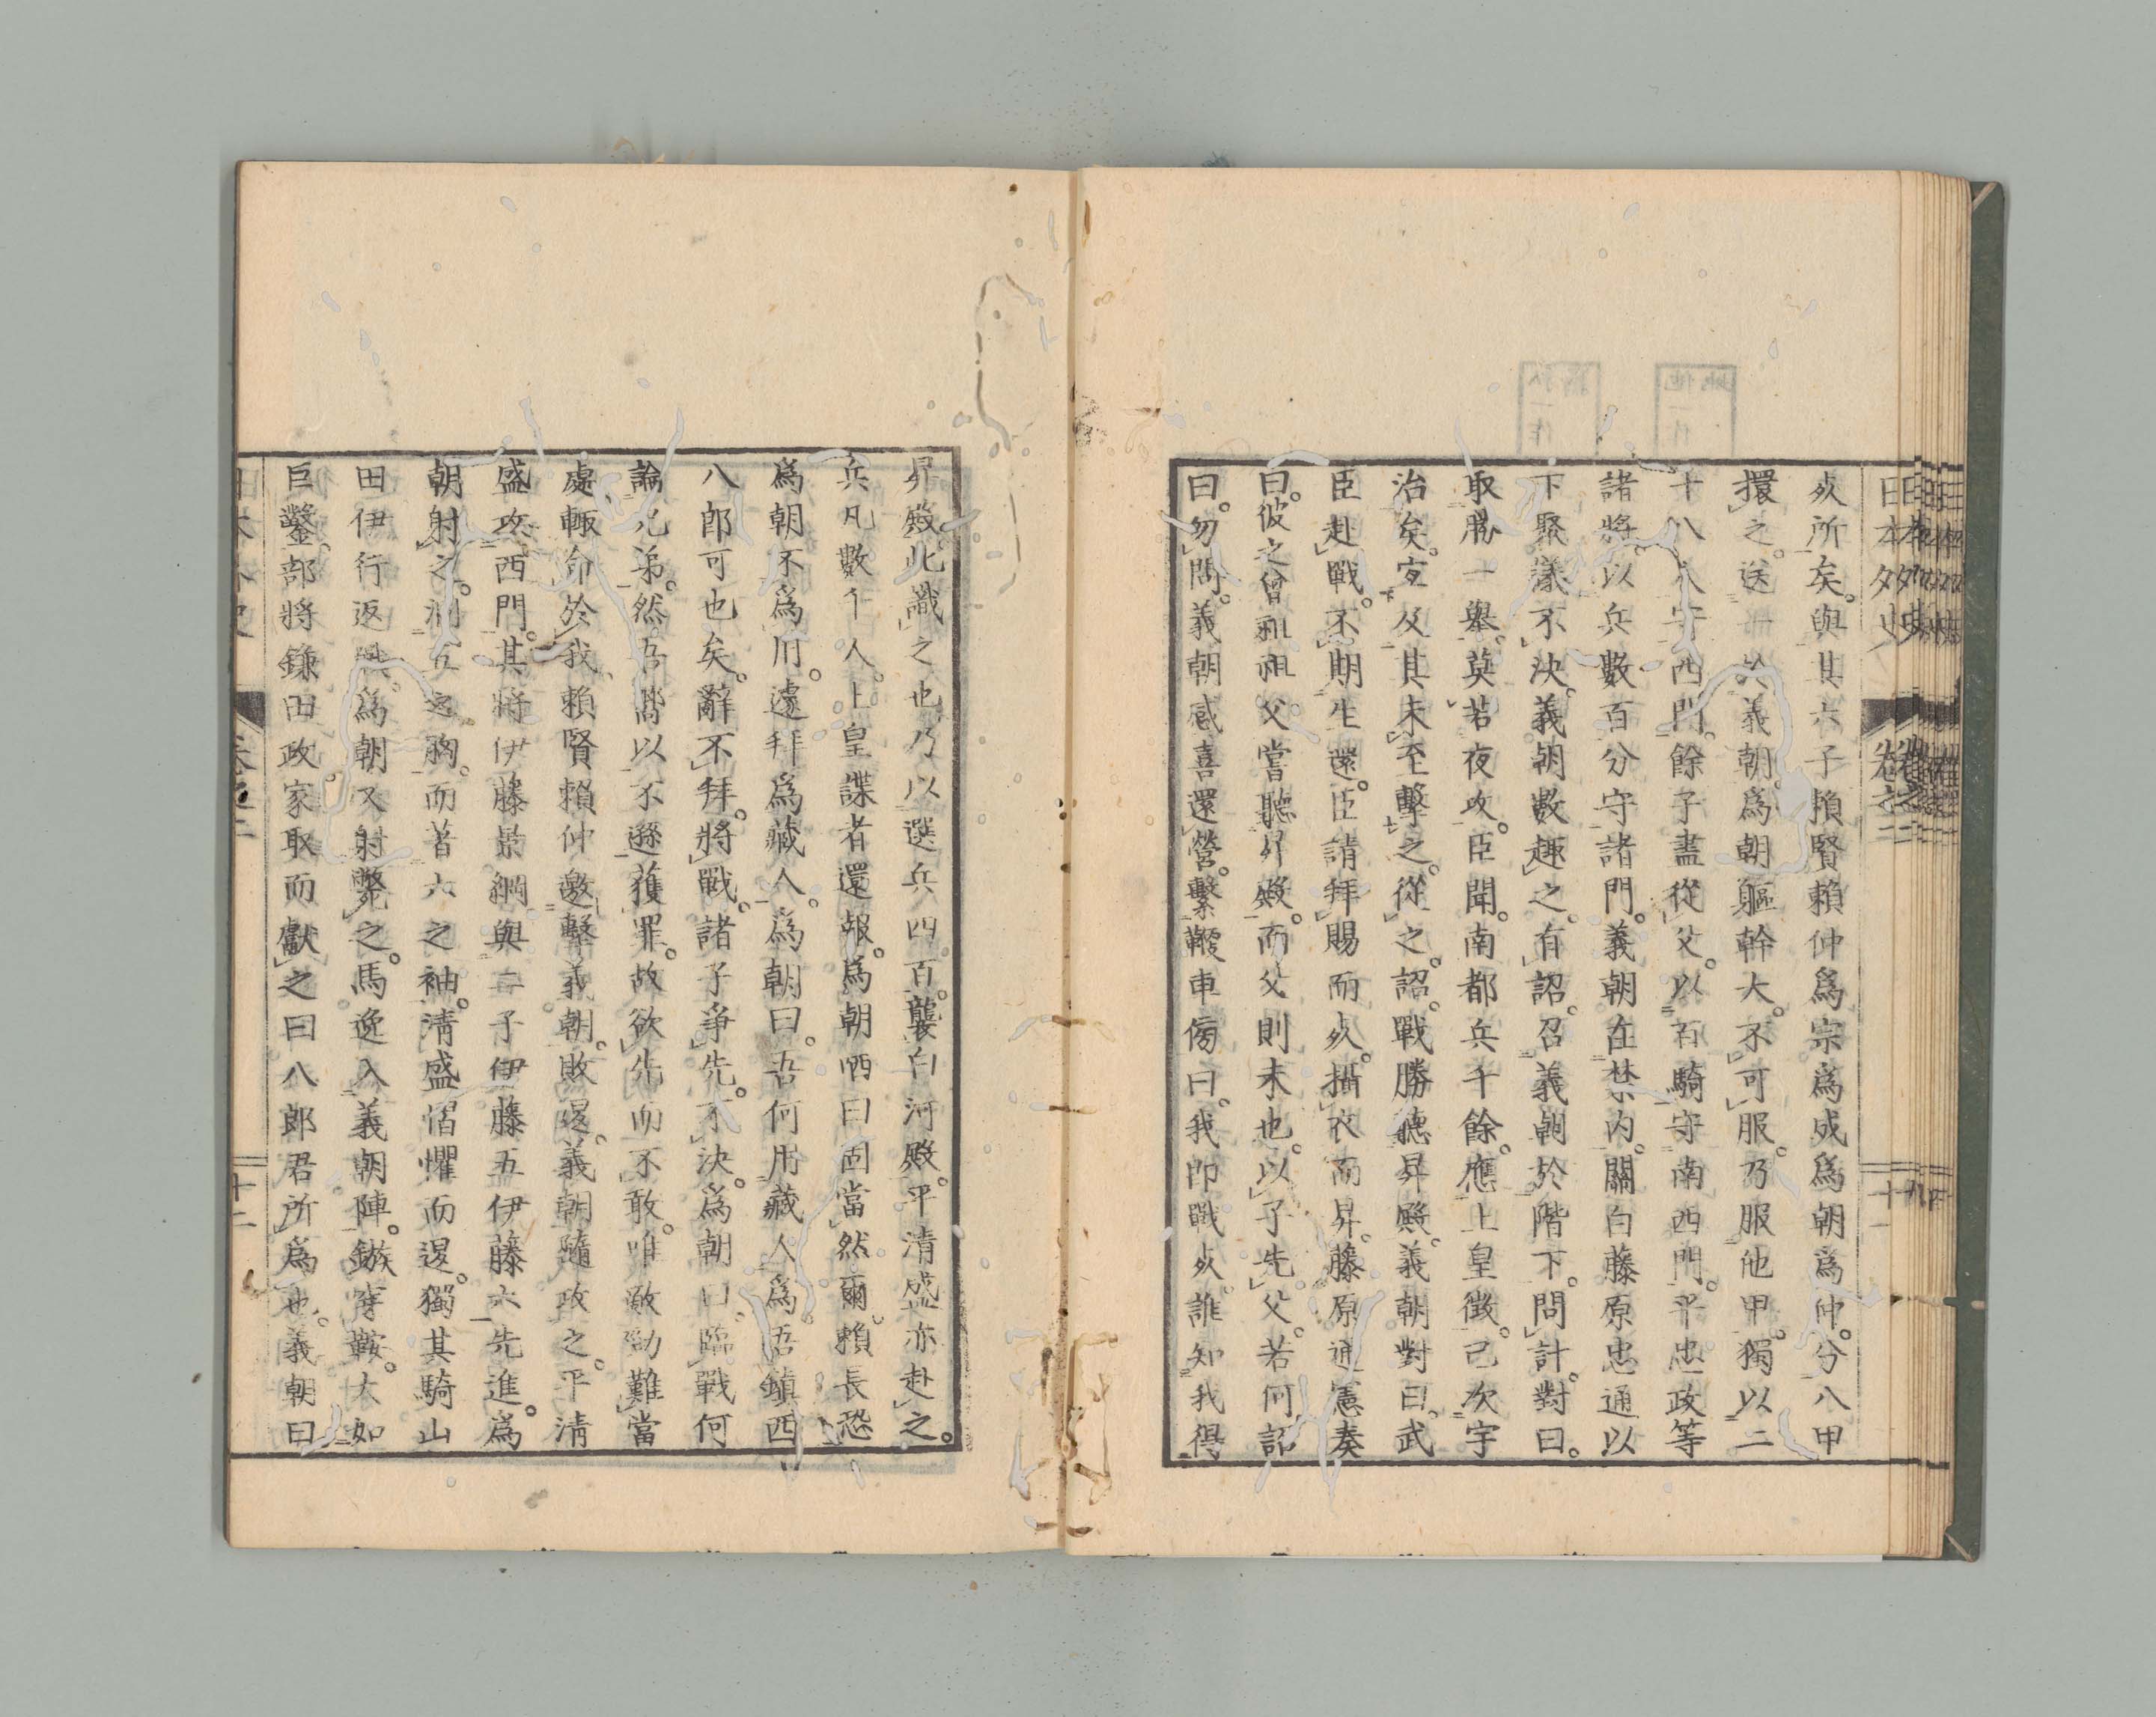 日本外史 卷之二 十一
死所矣。與其六子賴賢賴仲爲宗爲成爲朝爲仲。分八甲
擐之。送一於義朝。爲朝軀幹大。不可服。乃服他甲。獨以二
十八人守西門。餘子盡從父。以百騎守南西門。平忠政等
諸將以兵數百分守諸門。義朝在禁內。關白藤原忠通以
下聚議不決。義朝數趣之。有詔。召義朝於階下。問計。對曰。
取勝一舉。莫若夜攻。臣聞。南都兵千餘。應上皇徵。已次宇
治矣。宜及其未至擊之。從之。詔。戰勝聽昇殿。義朝對曰。武
臣赴戰。不期生還。臣請拜賜而死。攝衣而昇。藤原通憲奏
曰。彼之曾祖祖父嘗聽昇殿。而父則未也。以子先父。若何。詔
曰。勿問。義朝感喜還營。繫鞭車傍曰。我卽戰死。誰知我得
昇殿。此識之也。乃以選兵四百。襲白河殿。平清盛亦赴之。
兵凡數千人。上皇諜者還報。爲朝哂曰。固當然爾。賴長恐
爲朝不爲用。遽拜爲藏人。爲朝曰。吾何用藏人爲。吾鎭西
八郎可也矣。辭不拜。將戰。諸子爭先。不決。爲朝曰。臨戰何
論兄弟。然吾嚮以不遜獲罪。故欲先而不敢。唯敵勁難當
處。輙命於我。賴賢賴仲邀擊義朝。敗退。義朝隨攻之。平淸
盛攻西門。其將伊藤景綱與二子伊藤五伊藤六先進。爲
朝射之。洞五之胸。而著六之袖。淸盛慴懼而退。獨其騎山
田伊行返戰。爲朝又射斃之。馬逸入義朝陣。鏃穿鞍。大如
巨鑿。部將鎌田政家取而獻之曰。八郎君所爲也。義朝曰
日本外史 卷之二 十二